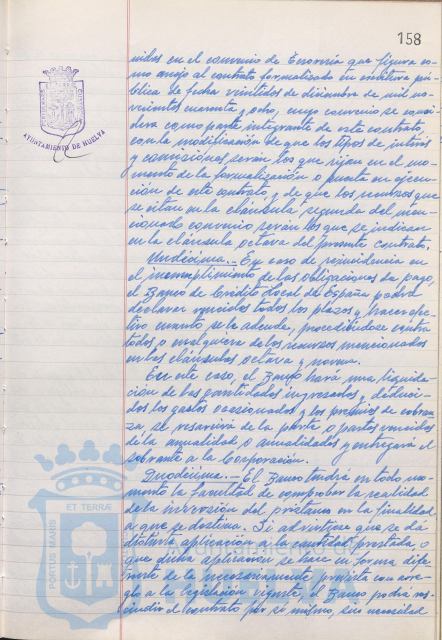 158
nidos en el convenio de Tesorería que figura co-
mo anejo al contrato formalizado en escritura pú-
blica de fecha veintidos de diciembre de mil no-
vecientos cuarenta y ocho, cuyo convenio se consi-
dera como parte integrante de este contrato
con la modificación de que los tipos de interés
y comisiones serán los que rijan en el mo-
mento de la formalización o puesta en ejecu-
ción de este contrato y de que los recursos que
se citan en la cláusula segunda del men-
cionado convenio serán los que se indican
en la cláusula octava del presente contrato.
Undécima.- En caso de reincidencia en
el incumplimiento de las obligaciones de pago,
el Banco de Crédito Local de España podrá
declarar vencidos todos los plazos y hacer efec-
tivo cuanto se le adeude, procediéndose contra
todos o cualquiera de los recursos mencionados
en las cláusulas octava y novena.
En este caso, el Banco hará una liquida-
ción de las cantidades ingresadas y deduci-
dos los gastos ocasionados y los premios de cobran-
za, se resarcirá de la parte o partes vencidas
de la anualidad o anualidades y entregará el
sobrante a la Corporación.
Duodécima.- El Banco tendrá en todo mo-
mento la facultad de comprobar la realidad
de la inversión del préstamo en la finalidad
a que se destina. Si advirtiese que se dá
distinta aplicación a la cantidad prestada, o
que dicha aplicación se hace en forma dife-
rente de la necesariamente prevista con arre-
glo a la legislación vigente, el Banco podrá res-
cindir el contrato por sí mismo, sin necesidad
AYUNTAMIENTO DE HUELVA
PORTUS MARIS
ET TERRÆ